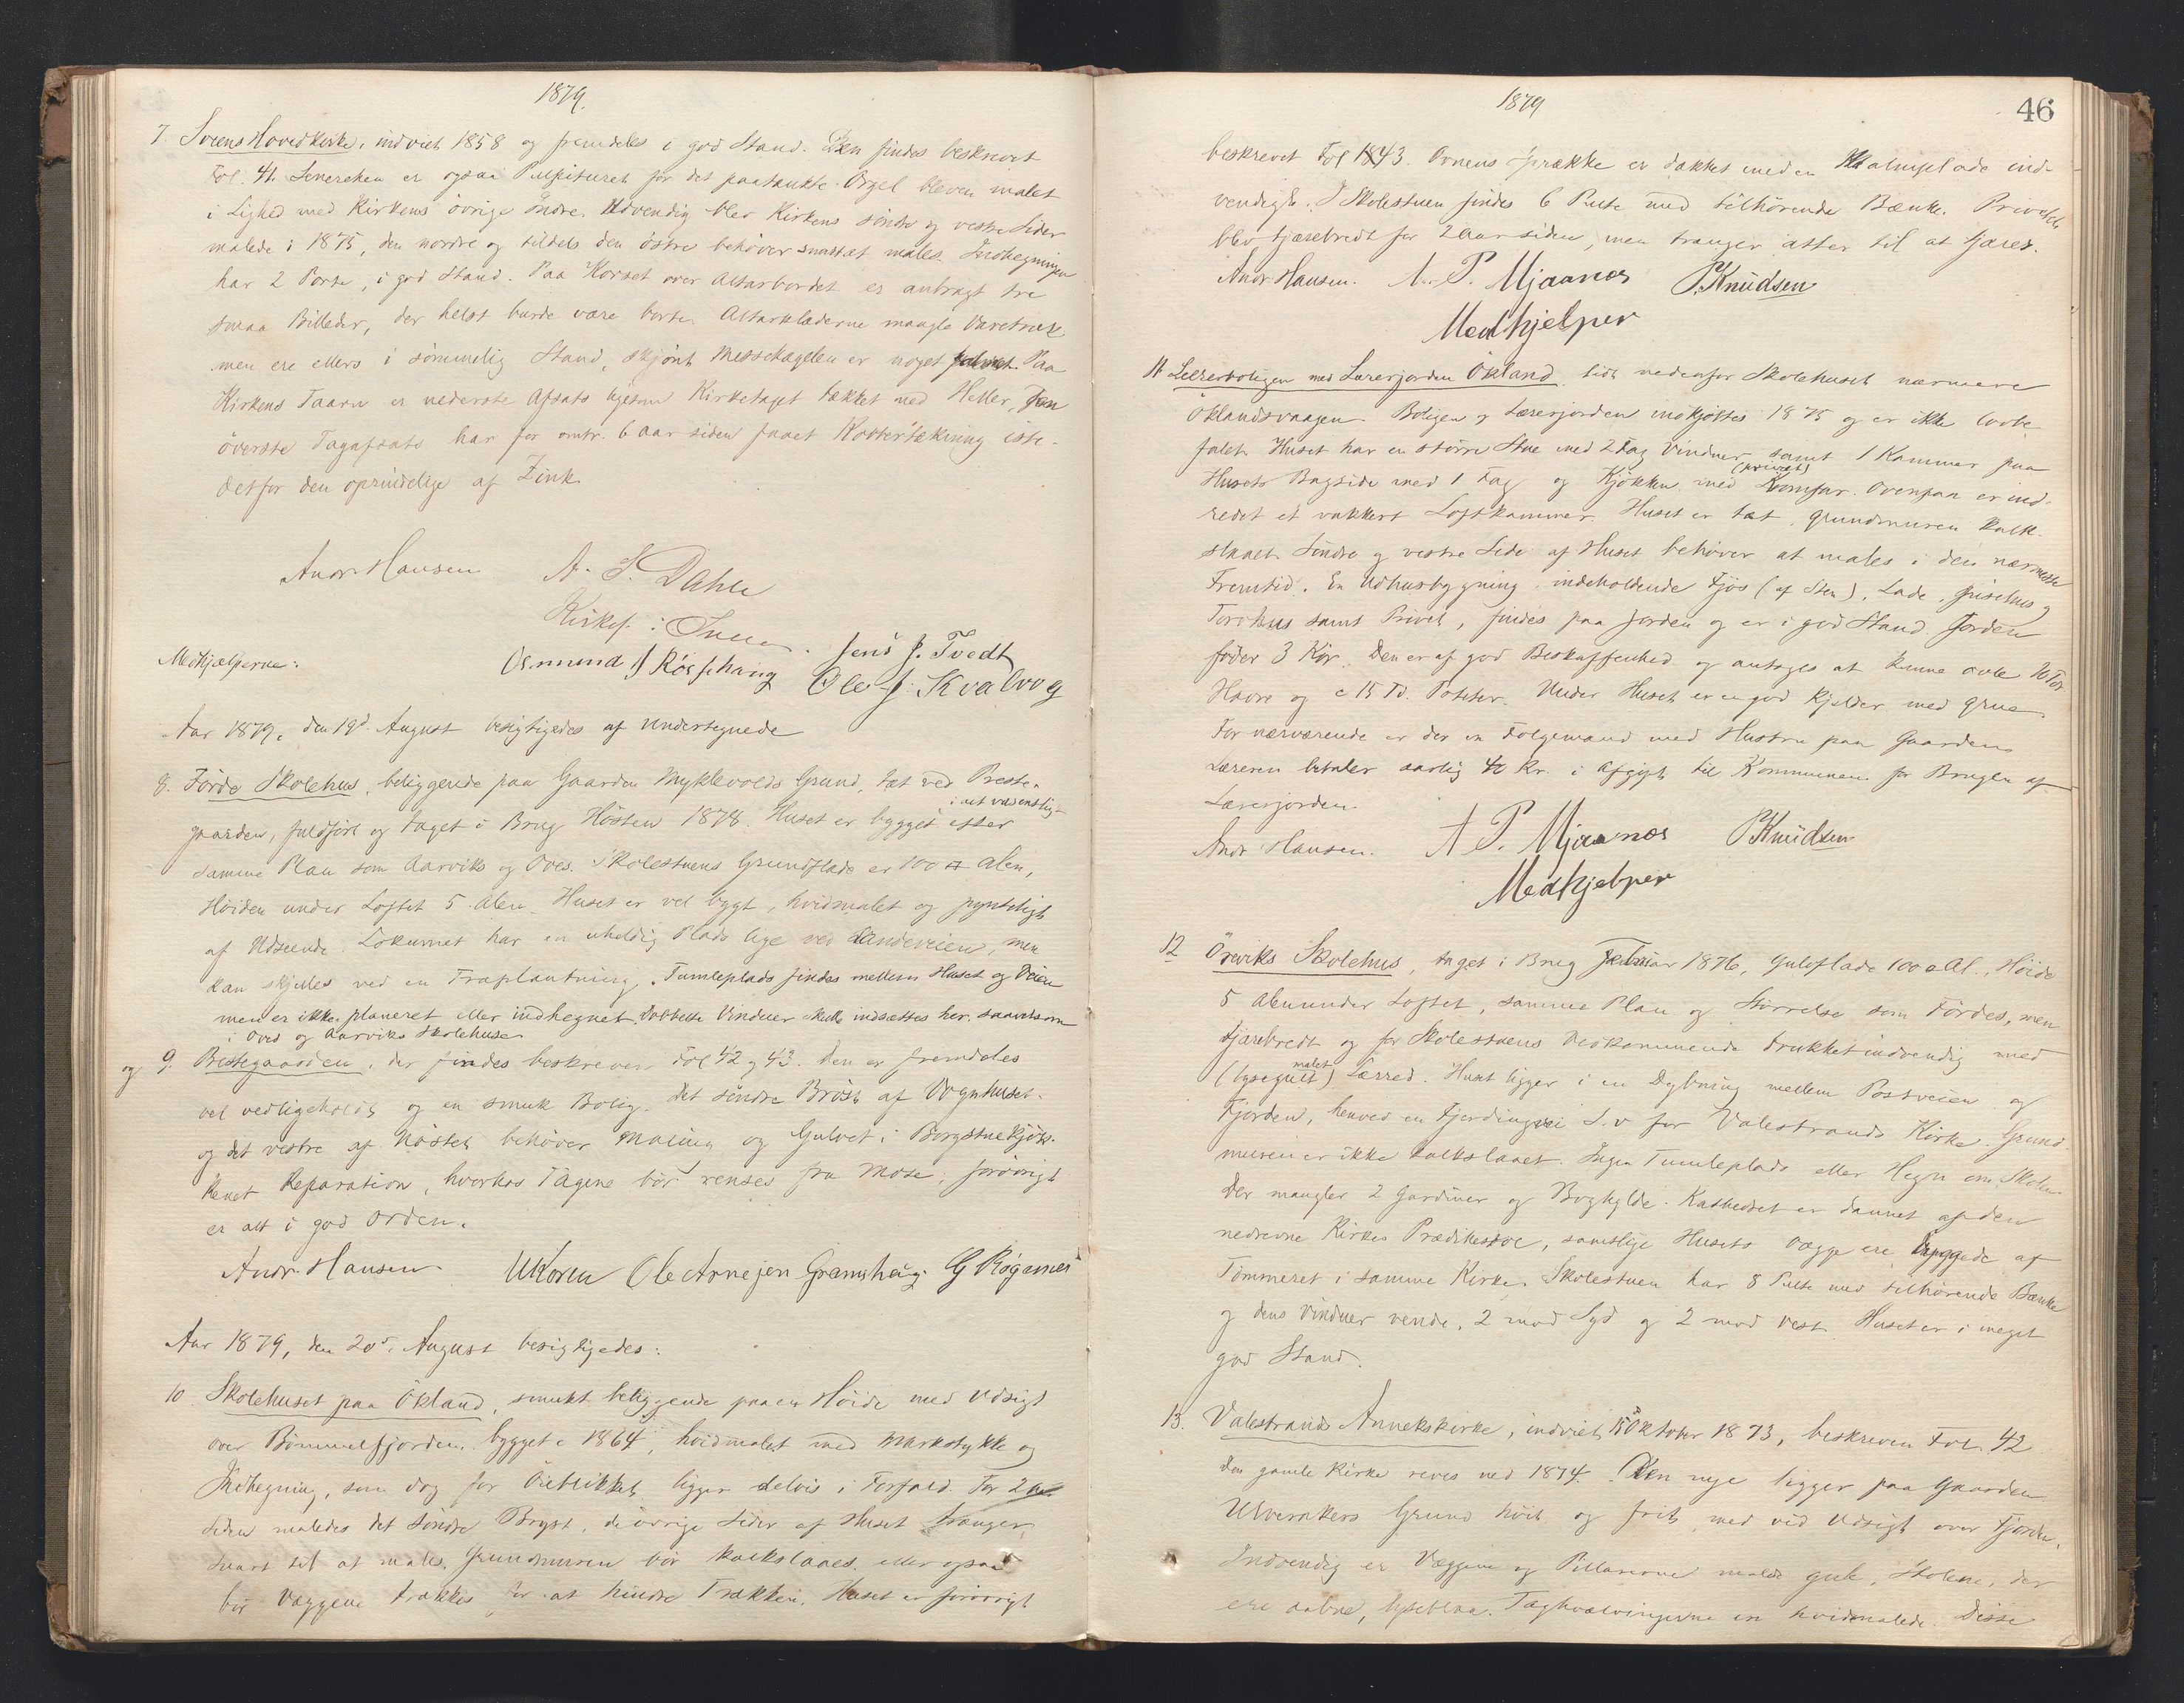 1879.
7. Sveens Hovedkirke, indviet 1858 og fremdeles i god Stand. Den findes beskrevet
Fol. 41. Senereken er ogsaa Pulpituret for det paatænkte Orgel bleven malet
i Lighed med Kirkens øvrige Indre. Udvendig blev Kirkens søndre og vestre Sider
malede i 1875, den nordre og tildels den östre behöver snarest at males. Indhegningen
har 2 Porte, i god Stand. Paa Korset over Altarbordet er anbragt tre
smaa Billeder, der helst burde være borte. Altarklæderne mangle Varetræk
men ere ellers i sömmelig Stand, skjönt Messehagelen er noget falmet. Paa
Kirkens Taarn er nederste Afsats ligesom Kirketaget tækket med Heller, den
överste Tagafsats har for omtr. 6 aar siden faaet Kobbertækning iste-
detfor den oprindelige af Zink.
Andr. Hansen A. S. Dahle
Kirkef. i Sveen
Medhjælperne: Osmund J Röishaug Jens J. Tvedt
Ole J. Kvalvog
Aar 1879, den 19d August besigtigedes af Undertegnede
8. Förde Skolehus, beliggende paa Gaarden Myklevolds Grund, tæt ved Preste-
gaarden, fuldfört og taget i Brug Hösten 1878. Huset er bygget i det væsentlig- efter
samme Plan som Aarviks og Oves. Skolestuens Grundflade er 100 □ Alen,
Höiden under Loftet 5 Alen. Huset er vel bygt, hvidmalet og pynteligt
af Udseende. Lokumet har en uheldig Plads lige ved Landeveien, men
kan skjules ved en Træplantning. Tumleplads findes mellem Huset og Veien
men er ikke planeret eller indhegnet. Dobbelte Vinduer skulle indsættes her, saavelsom
i Oves og Aarviks Skolehuse
og 9. Prestegaarden, der findes beskreven Fol 42 og 43. Den er fremdeles
vel vedligeholdt og en smuk Bolig. Det söndre Bröst af Vognhuset
og det vestre af Nöstet behöver Maling og Gulvet i Borgstuekjök-
kenet Reparation, hvorhos Tagene bör renses fra Mose, forövrigt
er alt i god Orden.
Andr. Hansen. U Koren Ole Arnesen Gramshaug. G Rögenæs
Aar 1879, den 20de August besigtigedes:
10 Skolehuset paa Ökland, smukt beliggende paa en Höide med Udsigt
over Bömmelfjorden, bygget c 1864, hvidmalet med Markstykke og
Indhegning, som dog for Öieblikket ligger delvis i Forfald. For 2 Aar
siden maledes det Söndre Bryst, de övrige Sider af Huset trænger
snart til at males. Grundmuren bör kalkslaaes eller ogsaa
bör Væggene trækkes for at hindre Trækken. Huset er forövrigt
1879
46
beskrevet Fol 43. Ovnens Sprække er dækket med en Malmplade ind-
vendigt. I Skolestuen findes 6 Pulte med tilhörende Bænke. Privetet
blev tjærebredt for 2 Aar siden, men trænger atter til at tjæres.
Andr. Hansen. A. P. Mjaanes P. Knudsen
Medhjelper
11 Lærerboligen med Lærerjorden Ökland, lidt nedenfor Skolehuset nærmere
Öklandsvaagen. Boligen og Lærerjorden indkjöbtes 1875 og er ikke lovbe-
falet. Huset har en större Stue med 2 Fag Vinduer, samt 1 Kammer paa
Husets Bagside med 1 Fag og Kjökken med (privat) Komfur. Ovenpaa er ind-
redet et vakkert Loftkammer. Huset er tæt, Grundmuren kalk-
slaaet. Söndre og vestre Side af Huset behöver at males i den nærmeste
Fremtid. En Udhusbygning indeholdende Fjös (af Sten), Lade, Grisehus og
Torvhus samt Privet, findes paa Jorden og er i god Stand. Jorden
föder 3 Kör. Den er af god Beskaffenhed og antages at kunne avle 16 Tdr
Havre og c 15 Td. Poteter. Under Huset er en god Kjelder med Grue.
For nærværende er der en Folgemand med Hustru paa Gaarden.
Læreren betaler aarlig 40 Kr. i Afgift til Kommunen for Brugen af
Lærerjorden.
Andr Hansen. A P. Mjaanes P Knudsen
Medhjelper
12 Örviks Skolehus, taget i Brug Februar 1876, Gulvflade 100 □ Al., Höide
5 Alen under Loftet, samme Plan og Störrelse som Fördes, men
tjærebredt og for Skolestuens Vedkommende trukket indvendig med
(lysegult malet) Lærred. Huset ligger i en Dybning mellem Postveien og
Fjorden, henved en Fjerdingvei S.v. for Valestrands Kirke. Grund-
muren er ikke kalkslaaet. Ingen Tumleplads eller Hegn om Skolen.
Der mangler 2 Gardiner og Boghylde. Kathedret er dannet af den
nedrevne Kirkes Prædikestol, samtlige Husets Vægge ere byggede af
Tömmeret i samme Kirke. Skolestuen har 8 Pulte med tilhörende Bænke
og dens Vinduer vende, 2 mod Syd og 2 mod Vest. Huset er i meget
god Stand.
13. Valestrands Annekskirke, indviet 15de Oktober 1873, beskreven Fol. 42
Den gamle Kirke reves ned 1874. Den nye ligger paa Gaarden
Ulverakers Grund höit og frit med vid Udsigt over Fjorden.
Indvendig er Væggene og Pillarerne malede gule, Stolene, der
ere aabne, lyseblaa. Taghvælvingerne ere hvidmalede. Disse